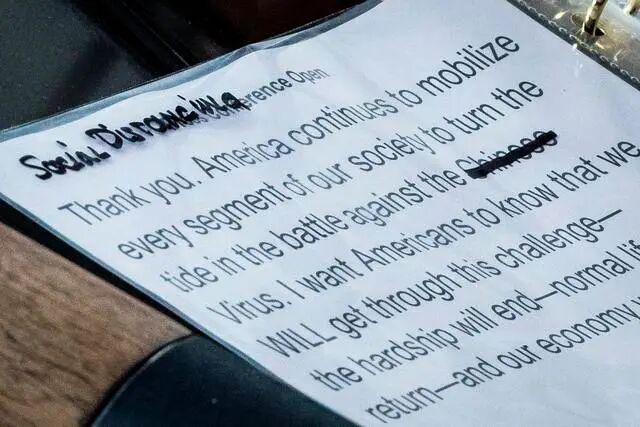 Social Distancing
erence Open
Thank you. America continues to mobilize
every segment of our society to turn the
tide in the battle against the Chinese
Virus. I want Americans to know that we
WILL get through this challenge—
the hardship will end—normal life
return—and our economy